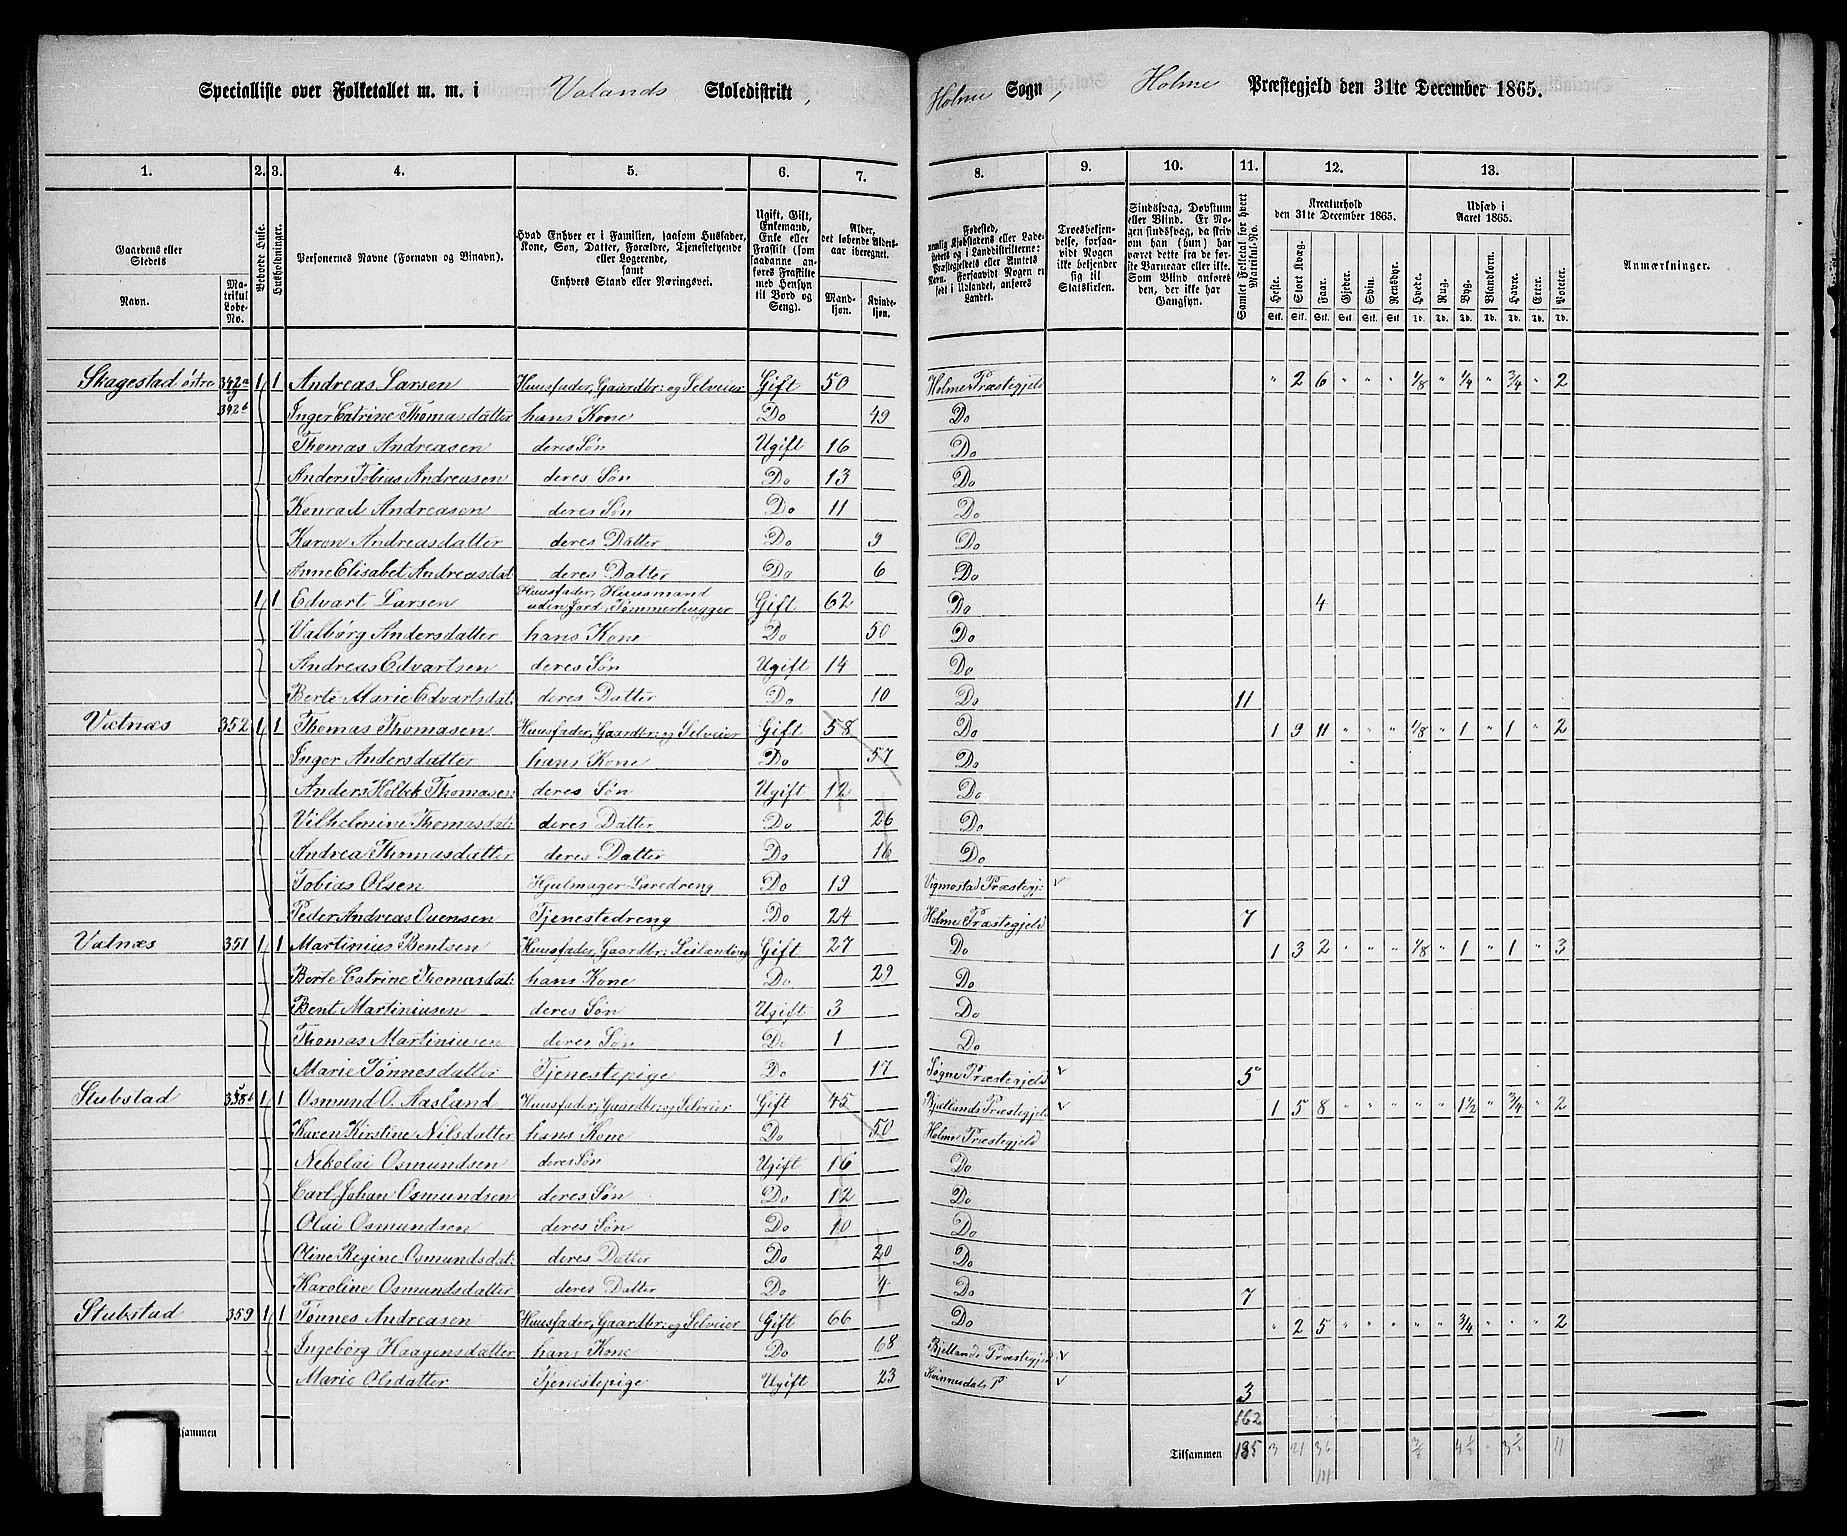 Specialliste over Folketallet m. m. i Valands Skoledistrikt, Holme Sogn, Holme Præstegjeld den 31te December 1865.
1. 2. 3. 4. 5. 6. 7. 8. 9. 10. 11. 12. 13.
Gaardens eller Stedets Navn. Matrikul Løbe-No. Beboede Huse. Husholdninger. Personernes Navne (Fornavn og Binavn). Hvad Enhver er i Familien, saasom Husfader, Kone, Søn, Datter, Forældre, Tjenestetyende eller Logerende, samt Enhvers Stand eller Næringsvei. Ugift, Gift, Enkemand, Enke eller Fraskilt (saadanne anføres Fraskilte med Hensyn til Bord og Seng). Alder, det løbende Aldersaar iberegnet. Mandkjøn. Kvindekjøn.
Fødested, Troesbekjendelse, forsaavidt Nogen ikke bekjender sig til Statskirken. Sindssvag, Døvstum eller Blind. Samlet Folketal for hvert Matrikul-No. Kreaturhold den 31te December 1865. Udsæd i Aaret 1865. Anmærkninger.
Heste. Stort Kvæg. Faar. Gjeder. Sviin. Rensdyr. Hvede. Rug. Byg. Blandkorn. Havre. Erter. Poteter.
Skagestad østre 342a 1 1 Andreas Larsen Huusfader, Gaardbr: og Selveier Gift 50 Holme Præstegjeld " 2 6 " " " 1/8 " 1/4 " 3/4 " 2
342b Inger Catrine Thomasdatter hans Kone Do 49 Do
Thomas Andreasen deres Søn Ugift 16 Do
Anders Tobias Andreasen deres Søn Do 13 Do
Konrad Andreasen deres Søn Do 11 Do
Karen Andreasdatter deres Datter Do 9 Do
Anne Elisabet Andreasdat: deres Datter Do 6 Do
1 1 Edvart Larsen Huusfader, Huusmand uden Jord, Tømmerhugger Gift 62 Do 4
Valborg Andersdatter hans Kone Do 50 Do
Andreas Edvartsen deres Søn Ugift 14 Do
Berte Marie Edvartsdat: deres Datter Do 10 Do 11
Vatnæs 352 1 1 Thomas Thomasen Huusfader, Gaardbr: og Selveier Gift 58 Do 1 9 11 " " " 1/8 " 1 " 1 " 2
Inger Andersdatter hans Kone Do 57 Do
Anders Holbek Thomasen: deres Søn Ugift 12 Do
Vilhelmine Thomasdat: deres Datter Do 26 Do
Andrea Thomasdatter deres Datter Do 16 Do
Tobias Olsen Hjulmager-Læredreng Do 19 Vigmostad Præstegj:
Peder Andreas Ouensen Tjenestedreng Do 24 Holme Præstegjeld 7
Vatnæs 351 1 1 Martinius Bentsen Huusfader, Gaardbr: Leilænding Gift 27 Do 1 3 2 " " " 1/8 " 1 " 1 " 3
Berte Catrine Thomasdat: hans Kone Do 29 Do
Bent Martiniusen deres Søn Ugift 3 Do
Thomas Martiniusen deres Søn Do 1 Do
Marie Tønnesdatter Tjenestepige Do 17 Søgne Præstegjeld 5
Stubstad 1 1 Osmund O. Aasland Huusfader, Gaardbr: og Selveier Gift 45 Bjellands Præstegjeld 1 5 8 " " " " " 1 1/2 " 3/4 " 2
Karen Kirstine Nilsdatter hans Kone Do 50 Holme Præstegjeld
Nikolai Osmundsen deres Søn Ugift 16 Do
Carl Johan Osmundsen deres Søn Do 12 Do
Olai Osmundsen deres Søn Do 10 Do
Oline Regine Osmundsdat: deres Datter Do 20 Do
Karoline Osmundsdatter deres Datter Do 4 Do 7
Stubstad 359 1 1 Tønnes Andreasen Huusfader, Gaardbr: og Selveier Gift 66 Do " 2 5 " " " " " 3/4 " " " 2
Ingeborg Haagensdatter hans Kone Do 68 Bjellands Præstegjeld
Marie Olsdatter Tjenestepige Ugift 23 Kvinnesdals P 3
162
Tilsammen 3 21 36 4 1/2 " 3 1/2 11